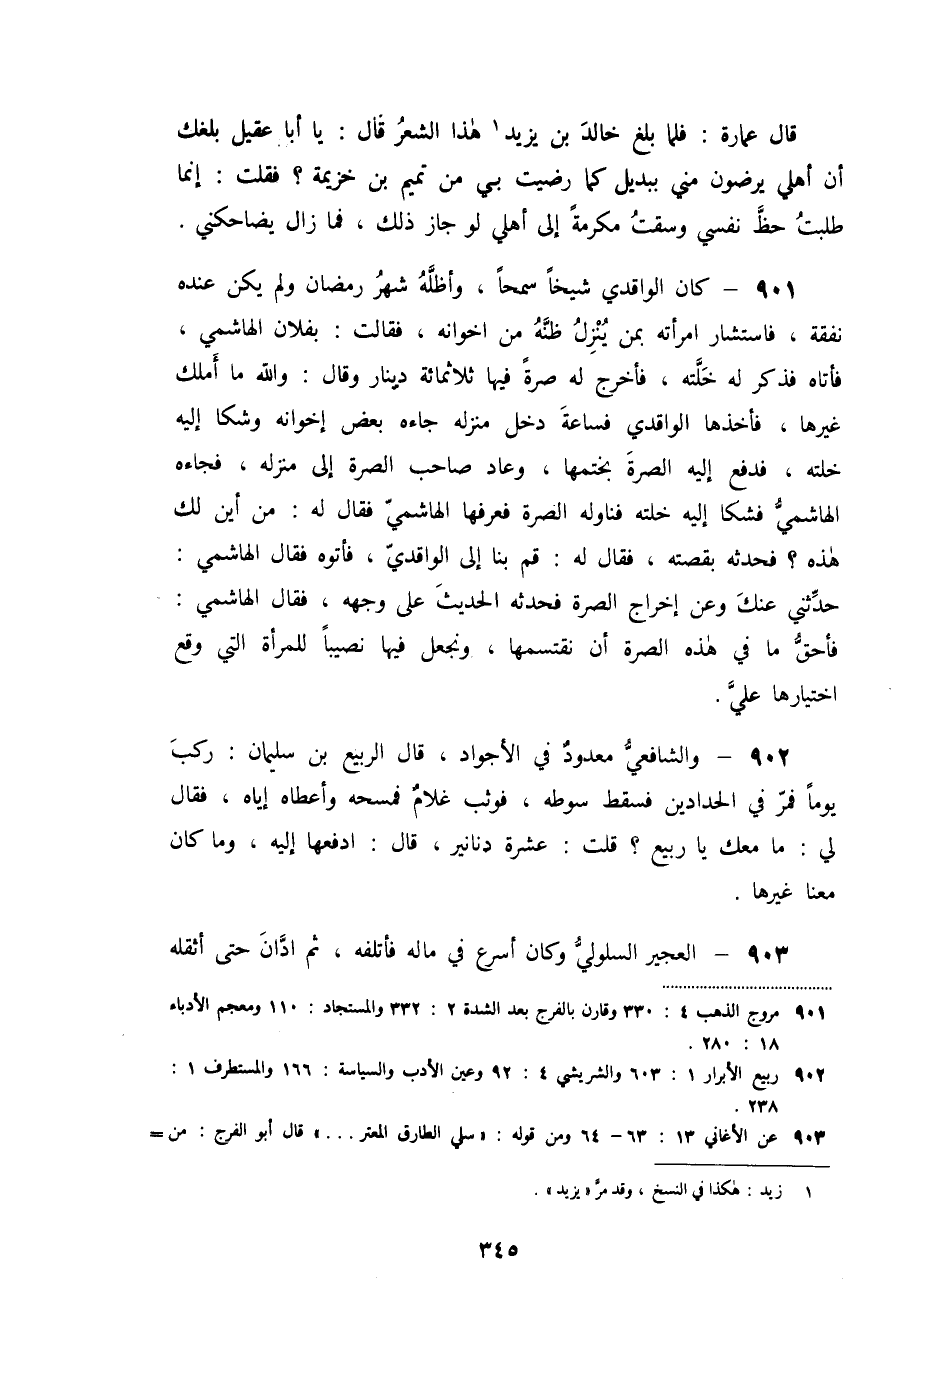 قال عمارة : فلما بلغ خالدَ بن يزيد١ هٰذا الشعرُ قال : يا أبا عقيل بلغك
أن أهلي يرضون مني ببديل كما رضيت بي من تميم بن خزيمة ؟ فقلت : إنما
طلبتُ حظَّ نفسي وسقتُ مكرمةً إلى أهلي لو جاز ذلك ، فما زال يضاحكني .
٩٠١ – كان الواقدي شيخاً سمحاً ، وأظلَّهُ شهرُ رمضان ولم يكن عنده
نفقة ، فاستشار امرأته بمن يُنْزِلُ ظنَّهُ من اخوانه ، فقالت : بفلان الهاشمي ،
فأتاه فذكر له خَلَّته ، فأخرج له صرةً فيها ثلاثمائة دينار وقال : والله ما أَملك
غيرها ، فأخذها الواقدي فساعةَ دخل منزله جاءه بعض إخوانه وشكا إليه
خلته ، فدفع إليه الصرةَ بختمها ، وعاد صاحب الصرة إلى منزله ، فجاءه
الهاشميُّ فشكا إليه خلته فناوله الصرة فعرفها الهاشميّ فقال له : من أين لك
هٰذه ؟ فحدثه بقصته ، فقال له : قم بنا إلى الواقديّ ، فأتوه فقال الهاشمي :
حدِّثني عنكَ وعن إخراج الصرة فحدثه الحديثَ على وجهه ، فقال الهاشمي :
فأحقُّ ما في هٰذه الصرة أن نقتسمها ، ونجعل فيها نصيباً للمرأة التي وقع
اختيارها عليَّ .
٩٠٢ – والشافعيُّ معدودٌ في الأجواد ، قال الربيع بن سليمان : ركبَ
يوماً فمرّ في الحدادين فسقط سوطه ، فوثب غلامٌ فمسحه وأعطاه إياه ، فقال
لي : ما معك يا ربيع ؟ قلت : عشرة دنانير ، قال : ادفعها إليه ، وما كان
معنا غيرها .
٩٠٣ – العجير السلوليُّ وكان أسرع في ماله فأتلفه ، ثم ادَّانَ حتى أثقله
٩٠١ مروج الذهب ٤ : ٣٣٠ وقارن بالفرج بعد الشدة ٢ : ٣٣٢ والمستجاد : ١١٠ ومعجم الأدباء
١٨ : ٢٨٠ .
٩٠٢ ربيع الأبرار ١ : ٦٠٣ والشريشي ٤ : ٩٢ وعين الأدب والسياسة : ١٦٦ والمستطرف ١ :
٢٣٨ .
٩٠٣ عن الأغاني ١٣ : ٦٣ – ٦٤ ومن قوله : «سلي الطارق المعتر ...» قال أبو الفرج : من =
١ زيد : هٰكذا في النسخ ، وقد مرَّ «يزيد» .
٣٤٥